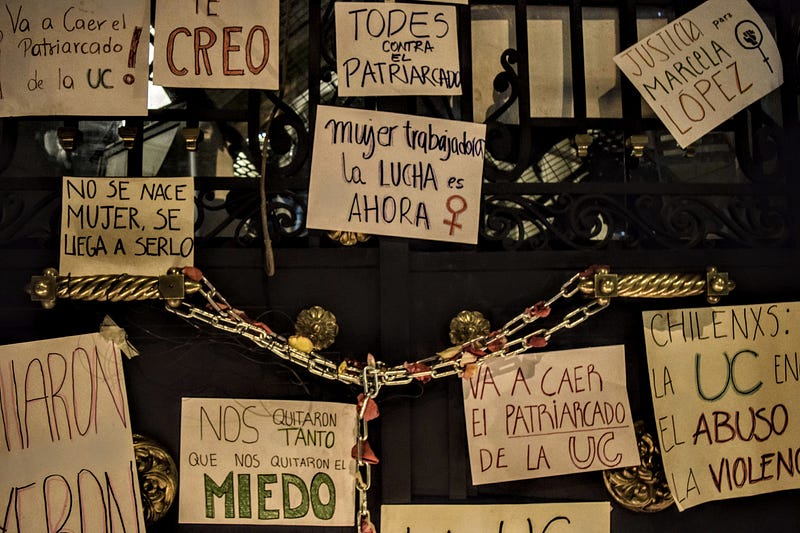 Va a Caer el
Patriarcado
de la UC !
TE
CREO
TODES
CONTRA
EL
PATRIARCADO
JUSTICIA para
MARCELA
LÓPEZ
mujer trabajadora
la LUCHA es
AHORA
NO SE NACE
MUJER, SE
LLEGA A SERLO
NOS QUITARON
TANTO
QUE NOS QUITARON EL
MIEDO
VA A CAER
El PATRIARCADO
DE LA UC
CHILENXS:
LA UC EN
EL ABUSO
LA VIOLENC